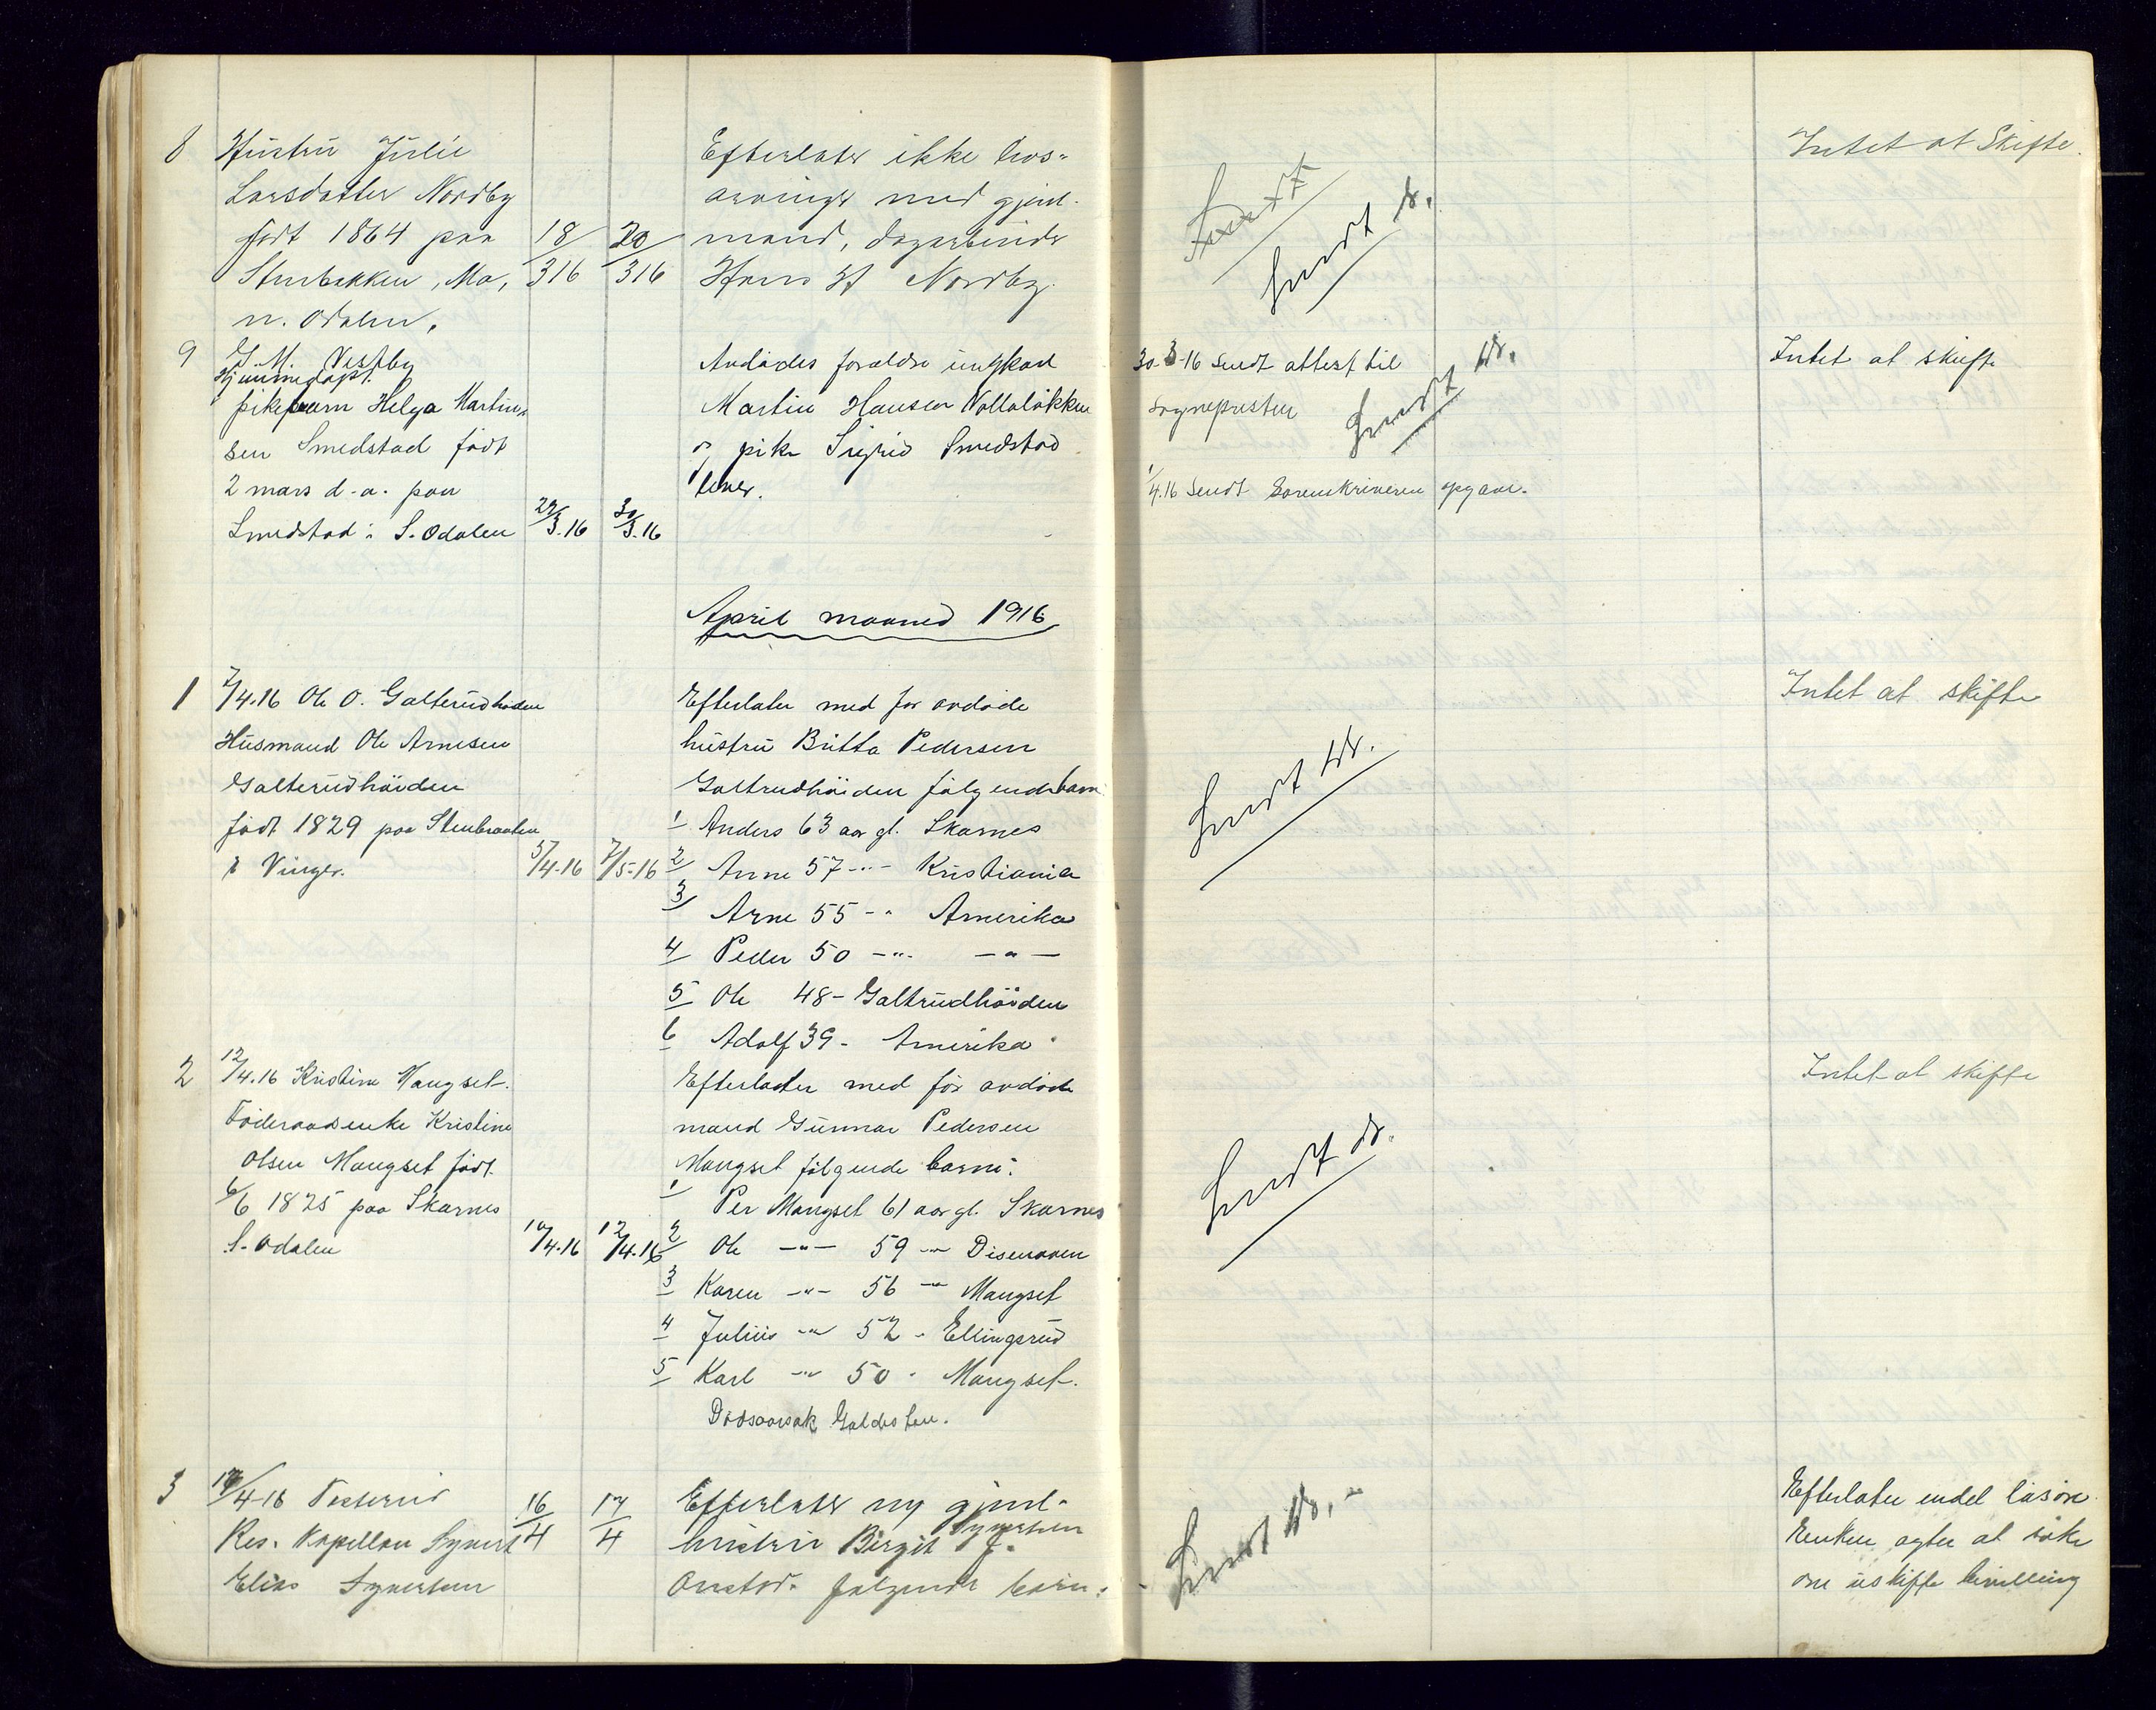 8
Hustru Julie
Larsdatter Nordby
født 1864 paa
Stenbakken, Mo,
n. Odalen.
18/316
20/316
Efterlater ikke livs-
arvinger med gjenl.
mand, dagarbeider
Hans H Nordby.
Sendt
Sendt
Intet at Skifte.
9
G. M. Vestby
Hjemmedøpt.
pikebarn Helga Martin-
sen Smedstad født
2 mars d.a. paa
Smedstad i S. Odalen
29/3.16
30/3.16
Avdødes forældre ungkarl
Martin Hansen Nollaløkken
og pike Sigrid Smedstad
lever.
30-3-16 Sendt attest til
Sognepresten
Sendt
1/4.16 Sendt Sorenskriveren opgave.
Intet at skifte
April maaned 1916
1
7/4.16 Ole O. Galterudhøiden
Husmand Ole Arnesen
Galterudhøiden
født 1829 paa Stenbraaten
i Vinger.
5/4-16
7/5-16
Efterlater med før avdøde
hustru Britta Pedersen
Galtrudhøiden følgende barn
1 Anders 63 aar gl. Skarnes
2 Anne 57 -"- Kristiania
3 Arne 55 -" Amerika
4 Peder 50 -"- -"-
5 Ole 48 - Galtrudhøiden
6 Adolf 39 - Amerika
Sendt
Intet at skifte
2
12/4.16 Kristine Mangset.
Føderaadsenke Kristine
Olsen Mangset født
6/6 1825 paa Skarnes
S. Odalen
10/4.16
12/4.16
Efterlater med før avdøde
mand Gunnar Pedersen
Mangset følgende barn:
1 Per Mangset 61 aar gl. Skarnes
2 Ole -"- 59 -"- Disenaaen
3 Karen -"- 56 -"- Mangset
4 Julius -"- 52 - Ellingsrud
5 Karl -"- 50 - Mangset.
Dødsaarsak Galdesten.
Sendt
Intet at skifte
3
17/4-16 Festerud
Res. Kapellan Syvert
Elias Syvertsen
16/4
17/4
Efterlater og gjenl-
hustru Birgit J. Syvertsen
Onstad. følgende barn:
Sendt
Efterlater endel løsøre.
Enken agter at søke
om uskifte bevilling